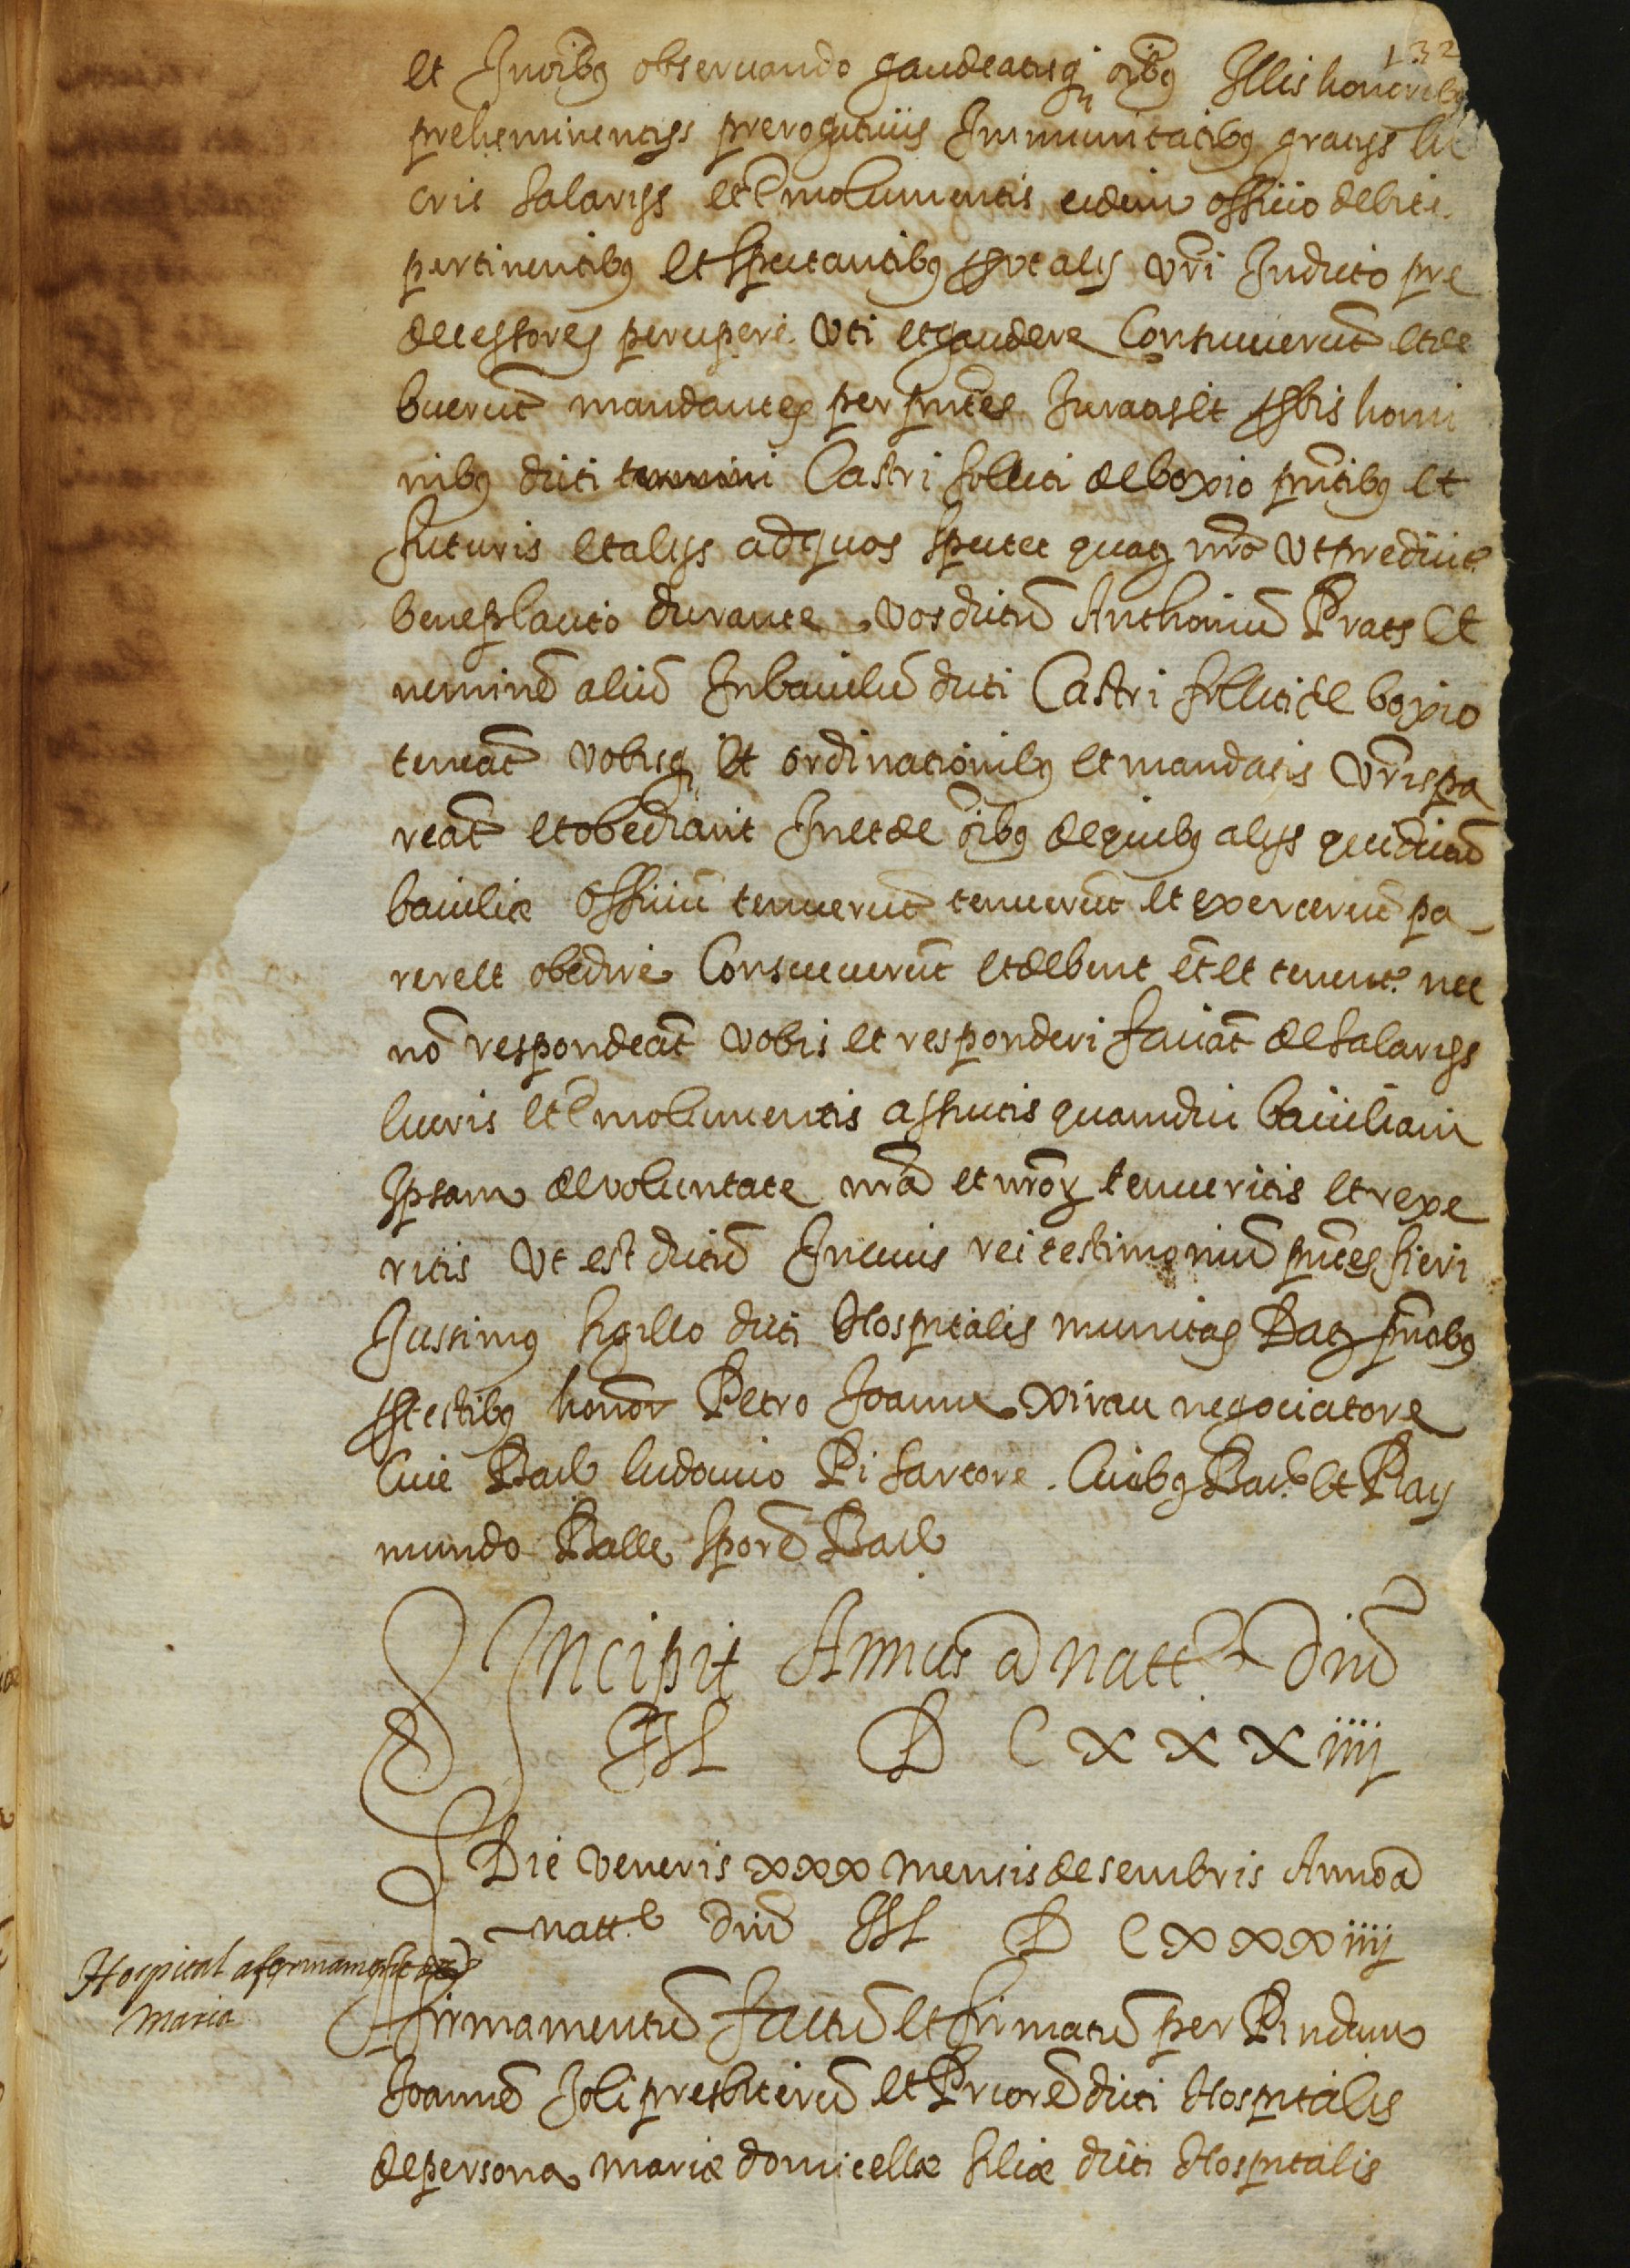 132
et Iuribus observando gaudeatisq oibus Illis honoribus
preheminentijs prerogativis Immunitatibus gratijs lu
cris salarijs et Emolumentis eidem officio debite
pertinentibus et spectantibus et alij vri Indicto pre
decessores percipere uti et gaudere Consueverut et de
buerut mandantes per pntes Iuratis et pbis homi
nibus dicti termini Castri follit de boxio pntibus et
futuris et alijs ad quos spectet quatz nro ut predicit
beneplacito durante vos dictu Anthoniu Prats et
nemine aliu In baiulu dicti Castri follit de boxio
teneat vobisq et ordinationibus et mandatis vris pa
reat et obediant In et de oibus de quibus alijs qui dictu
baiuliæ officiu tenuerut tenuerut et exercerut pa
rere et obedire Consueverut et debent et tenent nec
no respondeat vobis et responderi faciat de salarijs
lucris et Emolumentis assuetis quamdiu baiuliam
Ipsam de voluntate nra et nroz tenueritis et rexe
ritis ut est dictu In cuius rei testimoniu pntes fieri
Iussimus sigillo dicti Hospitalis munitas Datz pntibus
p testibus honor Petro Joanne xirau negociatore
Cive Barl ludovico Pi sartore Civibus Barl et Ray
mundo Balle spore Barl
Incipit Annus a natt Dni
M D C xxxiiij
Die veneris xxx mensis desembris Anno a
natt Dni M D C xxxiiij
Hospital afermament de
Maria
Affirmamentu factu et firmatu per Rindum
Joanne Joli presbiteru et Priore dicti Hospitalis
de persona mariæ domicellæ filiæ dicti Hospitalis